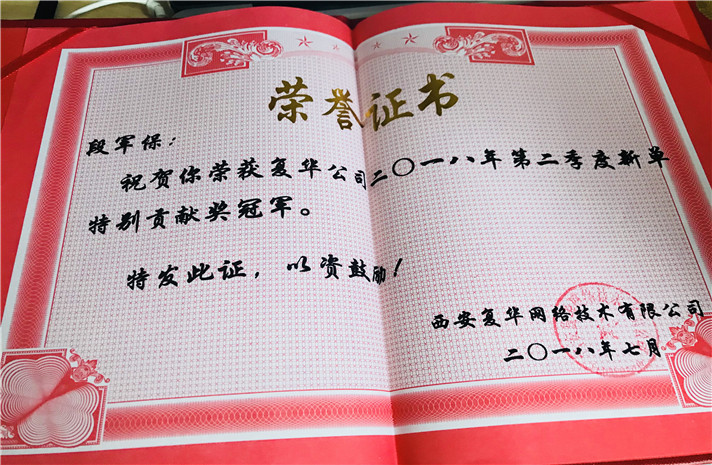 荣誉证书
段军保：
祝贺你荣获复华公司二〇一八年第二季度新单
特别贡献奖冠军。
特发此证，以资鼓励！
西安复华网络技术有限公司
二〇一八年七月